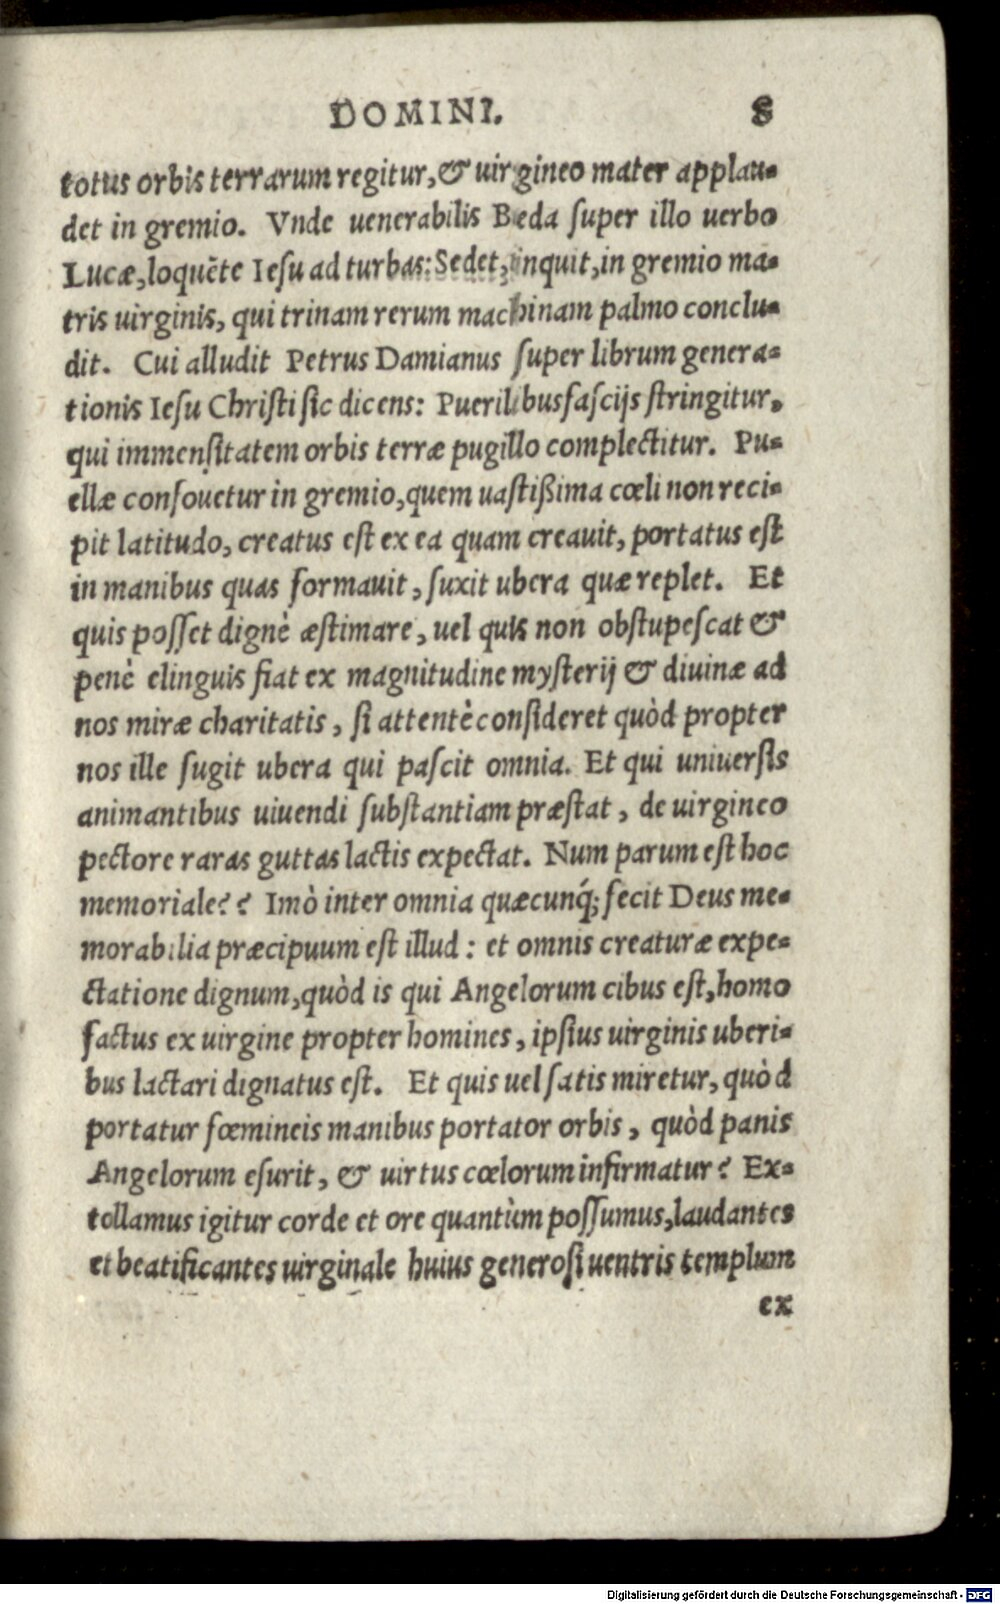 DOMINI. 8
totus orbis terrarum regitur, & uirgineo mater applau-
det in gremio. Vnde uenerabilis Beda ſuper illo uerbo
Lucæ, loquēte Ieſu ad turbas: Sedet, inquit, in gremio ma-
tris uirginis, qui trinam rerum machinam palmo conclu-
dit. Cui alludit Petrus Damianus ſuper librum genera-
tionis Ieſu Chriſti ſic dicens: Puerilibus faſcijs ſtringitur,
qui immenſitatem orbis terræ pugillo complectitur. Pu-
ellæ confouetur in gremio, quem uaſtißima cœli non reci-
pit latitudo, creatus eſt ex ea quam creauit, portatus eſt
in manibus quas formauit, ſuxit ubera quæ replet. Et
quis poſſet dignè æſtimare, uel quis non obſtupeſcat &
penè elinguis fiat ex magnitudine myſterij & diuinæ ad
nos miræ charitatis, ſi attentè conſideret quòd propter
nos ille ſugit ubera qui paſcit omnia. Et qui uniuerſis
animantibus uiuendi ſubſtantiam præſtat, de uirgineo
pectore raras guttas lactis expectat. Num parum eſt hoc
memoriale?? Imò inter omnia quæcunq́; fecit Deus me-
morabilia præcipuum eſt illud: et omnis creaturæ expe-
ctatione dignum, quòd is qui Angelorum cibus eſt, homo
factus ex uirgine propter homines, ipſius uirginis uberi-
bus lactari dignatus eſt. Et quis uel ſatis miretur, quòd
portatur fœmineis manibus portator orbis, quòd panis
Angelorum eſurit, & uirtus cœlorum infirmatur? Ex-
tollamus igitur corde et ore quantùm poſſumus, laudantes
et beatificantes uirginale huius generoſi uentris templum
ex
Digitalisierung gefördert durch die Deutsche Forschungsgemeinschaft - DFG